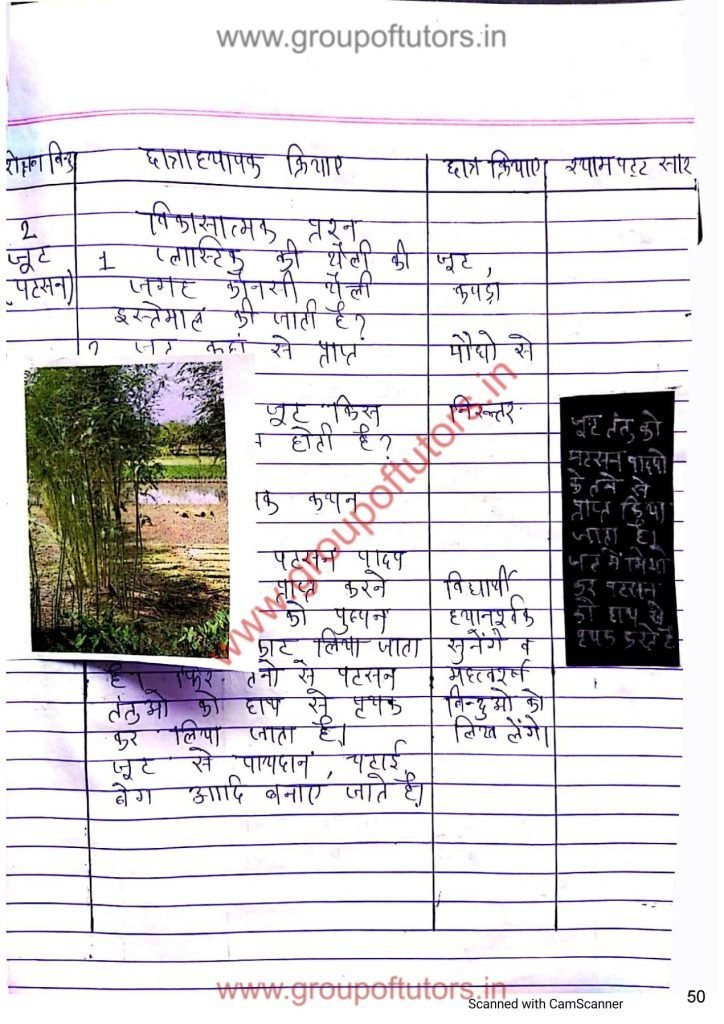 www.groupoftutors.in
शिक्षण बिन्दु छात्राध्यापक क्रियाए छात्र क्रियाए श्यामपट्ट सार
2 विकासात्मक प्रश्न
जूट 1 प्लास्टिक की थैली की जूट,
(पटसन) जगह कौनसी थैली कपड़ा
इस्तेमाल की जाती है?
2 जूट कहां से प्राप्त पौधो से
जूट किस निरुत्तर
होती है?
क कथन
पटसन पादप
प्राप्त करने विद्यार्थी
को पुष्पन ध्यानपूर्वक
काट लिया जाता सुनेंगे व
है। फिर तनो से पटसन महत्वपूर्ण
तंतुओ को हाथ से पृथक बिन्दुओ को
कर लिया जाता है। लिख लेंगे।
जूट से पायदान, चटाई,
बेग आदि बनाए जाते है।
जूट तंतु को
पटसन पादपो
के तने से
प्राप्त किया
जाता है।
पटसन
को हाथ से
पृथक करते है
www.groupoftutors.in
www.groupoftutors.in
Scanned with CamScanner
50